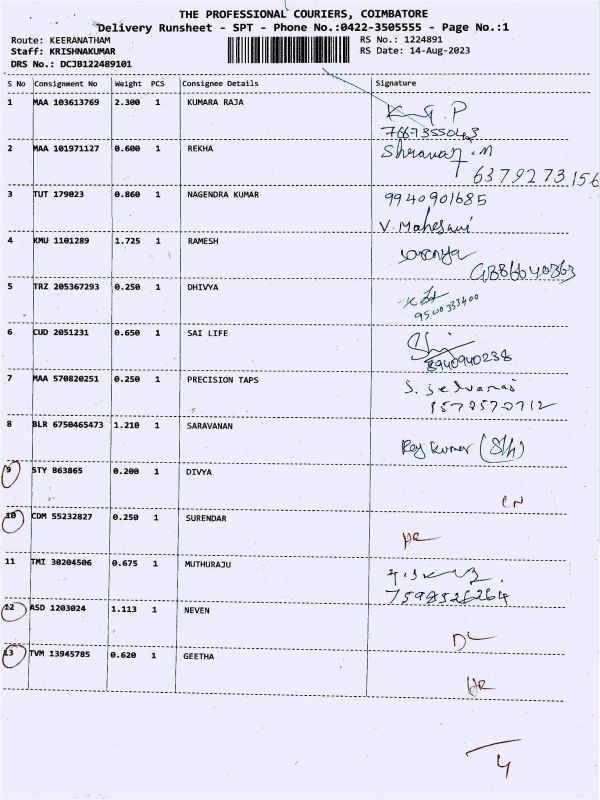 THE PROFESSIONAL COURIERS, COIMBATORE
Delivery Runsheet - SPT - Phone No.:0422-3505555 - Page No.:1
Route: KEERANATHAM RS No.: 1224891
Staff: KRISHNAKUMAR RS Date: 14-Aug-2023
DRS No.: DCJB122489101
S No Consignment No Weight PCS Consignee Details Signature
1 MAA 103613769 2.300 1 KUMARA RAJA
7667355043
2 MAA 101971127 0.600 1 REKHA Shravan .M
6379273156
3 TUT 179023 0.860 1 NAGENDRA KUMAR 9940901685
V. Maheswari
4 KMU 1101289 1.725 1 RAMESH saranya
5 TRZ 205367293 0.250 1 DHIVYA
9500333400
6 CUD 2051231 0.650 1 SAI LIFE
8940940238
7 MAA 570820251 0.250 1 PRECISION TAPS S. Selvaraj
8 BLR 6750465473 1.210 1 SARAVANAN
9 STY 863865 0.200 1 DIVYA
CN
10 CDM 55232827 0.250 1 SURENDAR
HR
11 TMI 30204506 0.675 1 MUTHURAJU
7598526264
12 ASD 1203024 1.113 1 NEVEN
DL
13 TVM 13945785 0.620 1 GEETHA
HR
4